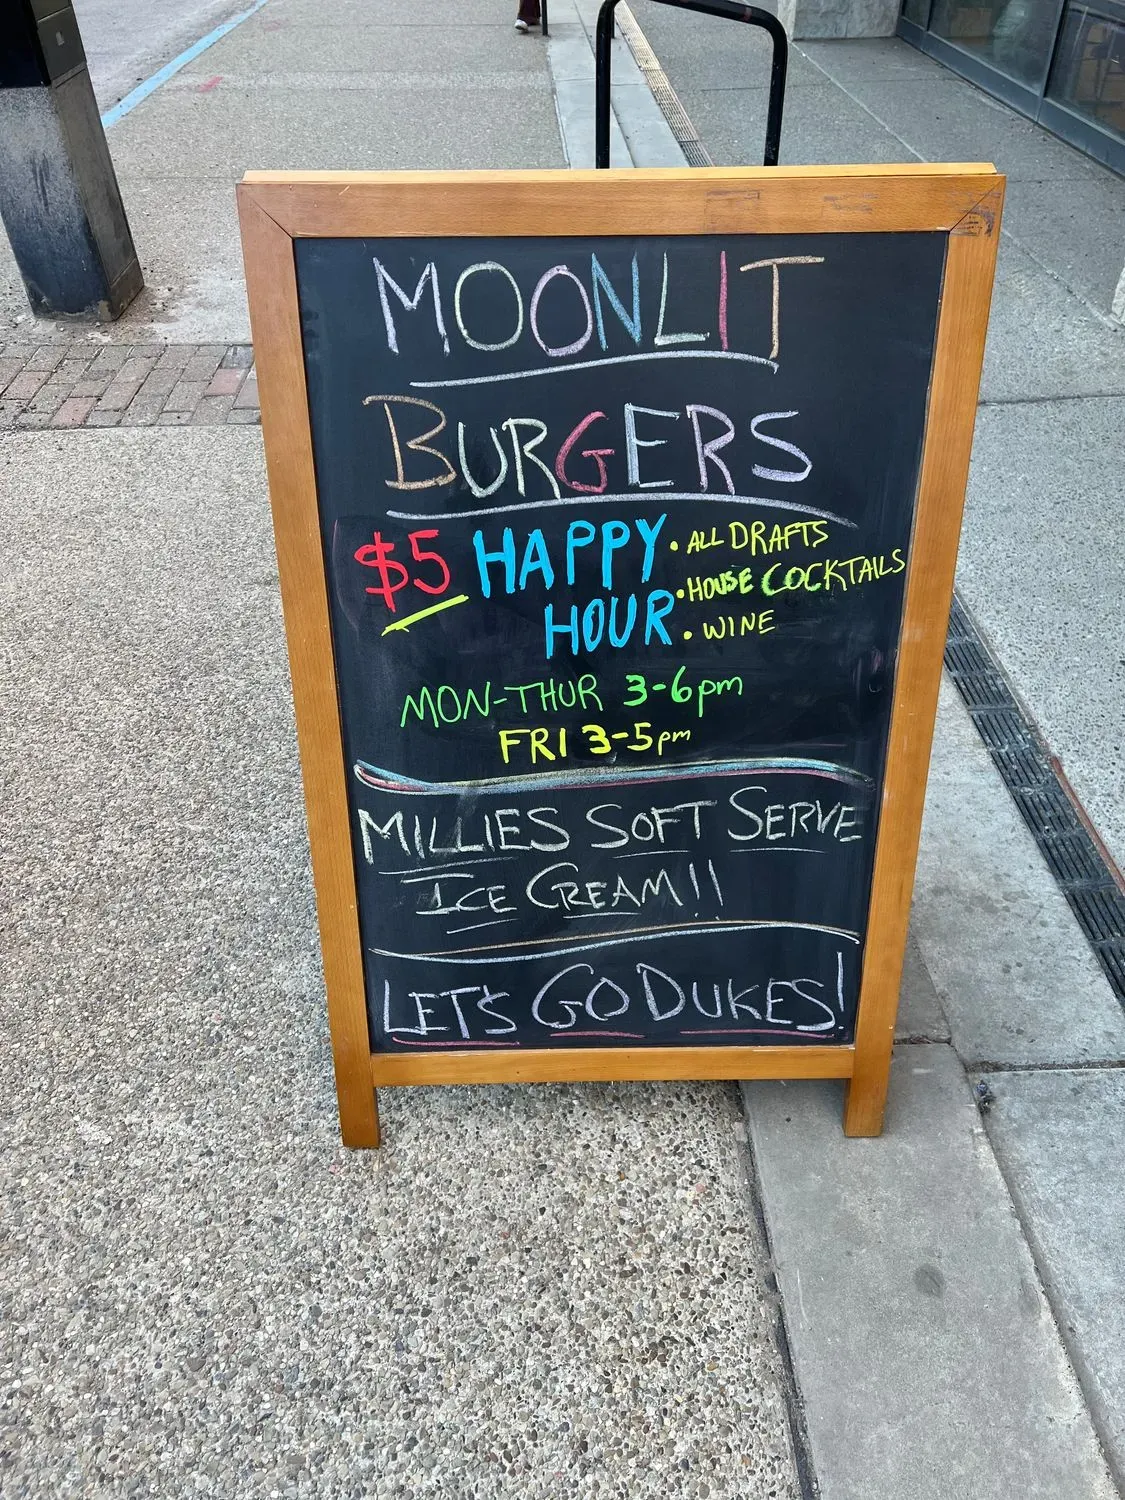 MOONLIT
BURGERS
$5 HAPPY HOUR
• ALL DRAFTS
• HOUSE COCKTAILS
• WINE
MON-THUR 3-6pm
FRI 3-5pm
MILLIES SOFT SERVE
ICE CREAM!!
LET'S GO DUKES!